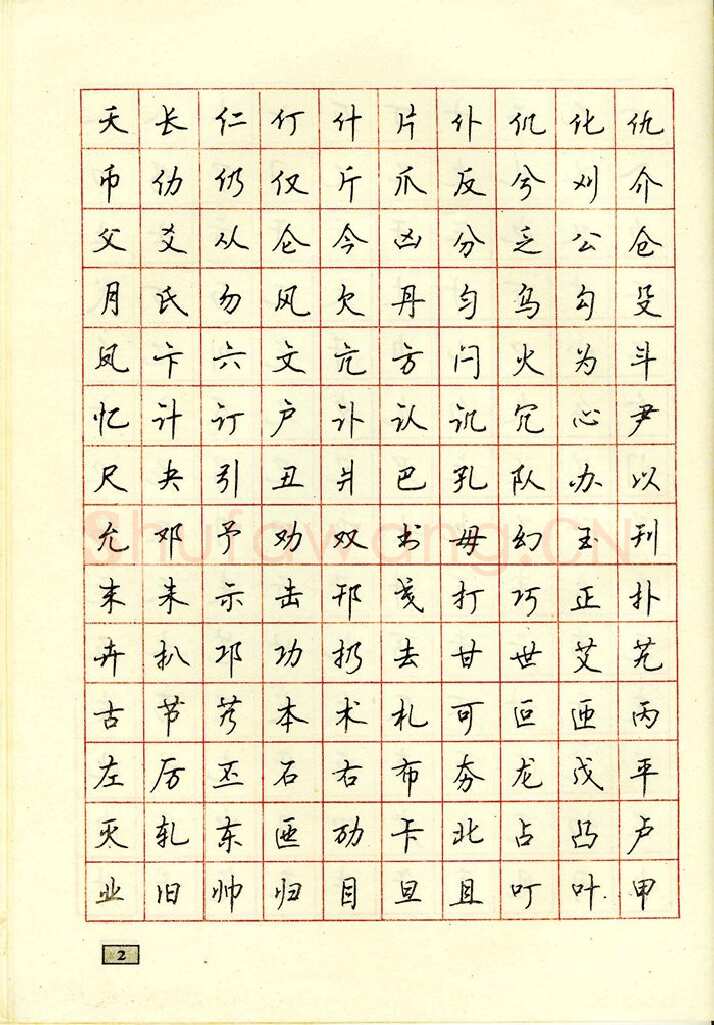 夭长仁仃什片仆仉化仇
币仂仍仅斤爪反兮刈介
父爻从仑今凶分乏公仓
月氏勿风欠丹匀乌勾殳
凤卞六文亢方闩火为斗
忆计订户讣认讥冗心尹
尺夬引丑爿巴孔队办以
允邓予劝双书毋幻玉刊
末未示击邗戋打巧正扑
卉扒邛功扔去甘世艾艽
古节艿本术札可叵匝丙
左厉丕石右布夯龙戊平
灭轧东匜劢卡北占凸卢
业旧帅归目旦且叮叶甲
2
Shufawang.CN